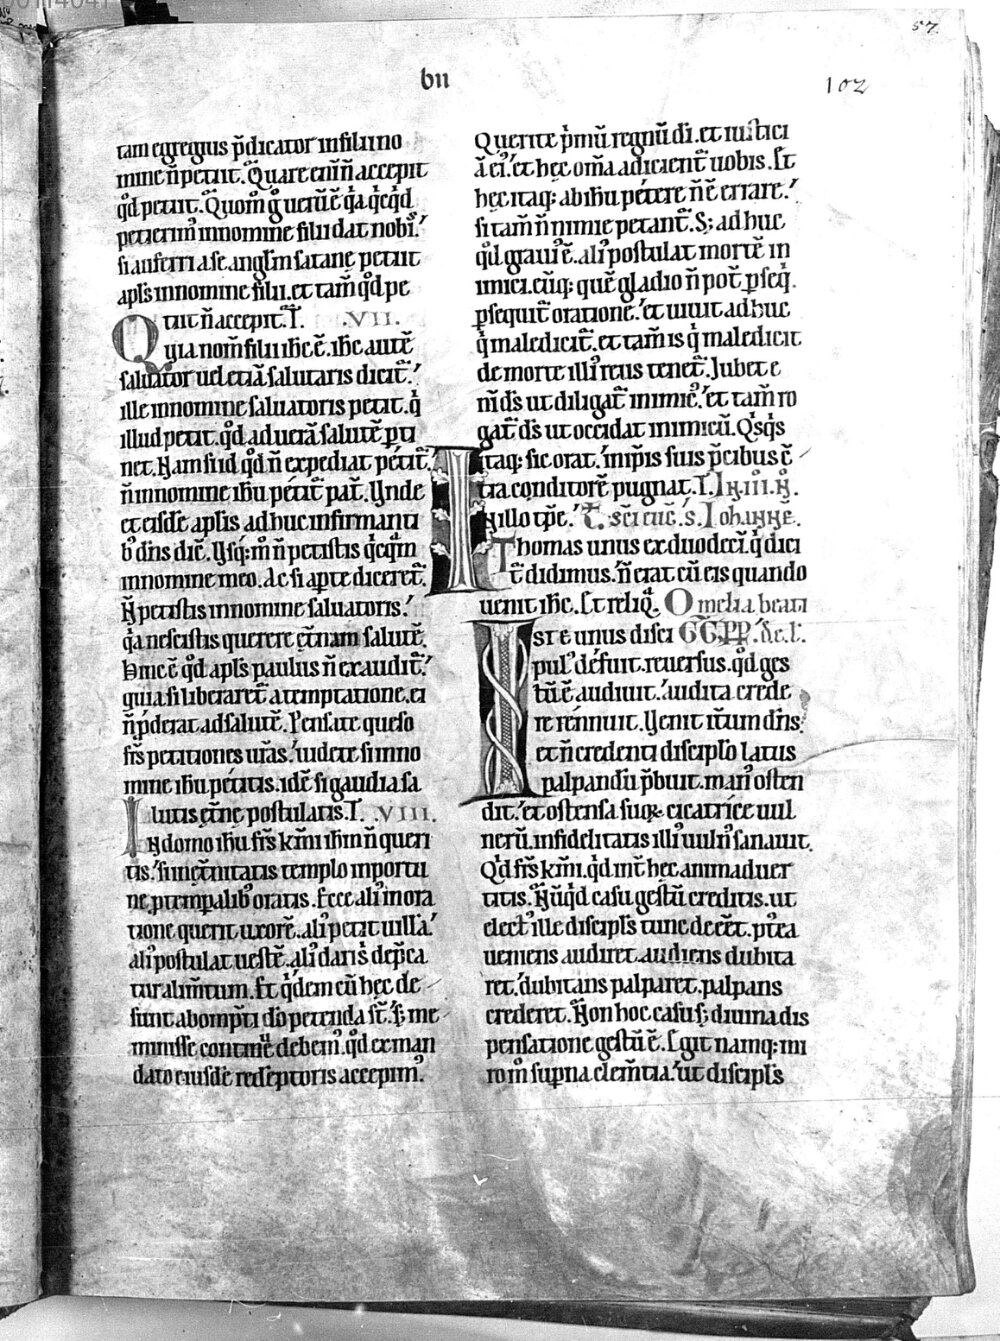 57.
bıı
102
tam egregius p̄dicator in filii no
mine n̄ petiit. Quare enī n̄ accepit
qd̓ petiit. Quom̊ g̊ uerū ē q̓a q̓cq̓d
petierim᷒ in nomine filii dat nobis.
si auferri a se anglm̄ satane petiit
apl̓s in nomine filii. et tam̄ qd̓ pe
tiit n̄ accepit. T. .VII.
Quia nom̄ filii ihc̄ ē. ihc̄ autē
saluator uel etiā salutaris dicit᷑.
ille in nomine saluatoris petit. q̓
illud petit. qd̓ ad uerā salutē p̱ti
net. Nam si id qd̓ n̄ expediat petit᷑.
n̄ in nomine ihu petit᷑ pat̄. Vnde
et eisdē apl̓is adhuc infirmanti
b᷒ dn̄s dic̄. Vsq; m̊ n̄ petistis q̓cq̓m
in nomine meo. Ac si apte diceret᷑.
N̄ petistis in nomine saluatoris.
q̓a nescistis querere et̄nam salutē.
Hinc ē qd̓ apl̓s paulus n̄ exaudit᷑.
quia si liberaret᷑ a temptatione. ei
n̄ p̱derat ad salutē. Pensate queso
fr̄s petitiones ur̄as. uidete si in no
mine ihu petitis. idē si gaudia sa
lutis et̄ne postulatis. T. .VIII.
In domo ihu fr̄s km̄i ihm n̄ queri
tis. si in et̄nitatis templo inportu
ne p̱ temp̱alib᷒ oratis. Ecce ali᷒ in ora
tione querit uxorē. ali᷒ petit uillā.
ali᷒ postulat uestē. ali᷒ dari s̓ dep̄ca
tur alim̄tum. Et q̓dem cū hec de
sunt ab omp̄ti dō petenda st̄. S; me
minisse continue debem᷒. qd̓ ex man
dato eiusdē redēptoris accepim᷒.
Querite p̓mū regnū di. et iustici
ā ei᷒. et hec om̄a adicient᷑ uobis. Et
hec itaq; ab ihu petere n̄ ē errare.
si tam̄ n̄ nimie petant᷑. S; adhuc
qd̓ graui᷒ ē. ali᷒ postulat mortē in
imici. eūq; quē gladio n̄ pot̄ p̱seq̓.
p̱sequit᷑ oratione. et uiuit adhuc
q̓ maledicit᷑. et tam̄ is q̓ maledicit
de morte illi᷒ reus tenet᷑. Jubet e
nī ds̄ ut diligat᷑ inimic᷒. et tam̄ ro
gat᷑ ds̄ ut occidat inimicū. Qs̓qs̓
itaq; sic orat. in ip̄is suis p̄cibus ē
tra conditorē pugnat. T. In .iii. N̄.
In illo tp̄e. scī euḡ. s. Iohannē.
Thomas unus ex duodecī. q̓ dici
t᷑ didimus. n̄ erat cū eis quando
uenit ihc̄. Et reliq̓. Omelia beati
Iste unus disci GG. PP. de. l̓.
pul᷒ defuit. reuersus. qd̓ ges
tū ē audiuit. audita crede
re rennuit. Venit it̄um dn̄s.
et n̄ credenti discipl̓o latus
palpandū p̄buit. man᷒ osten
dit. et ostensa suaꝝ cicatrice uul
nerū. infidelitatis illi᷒ uuln᷒ sanauit.
Qd̓ fr̄s km̄i. qd̓ int᷑ hec animaduer
titis. Nūq̓d casu gestū creditis. ut
elect᷒ ille discipl̓s tunc deēet. p᷒tea
ueniens audiret. audiens dubita
ret. dubitans palparet. palpans
crederet. Non hoc casu s; diuina dis
pensatione gestū ē. Egit namq; mi
ro m̊ sup̱na clem̄tia. ut discipl̓s